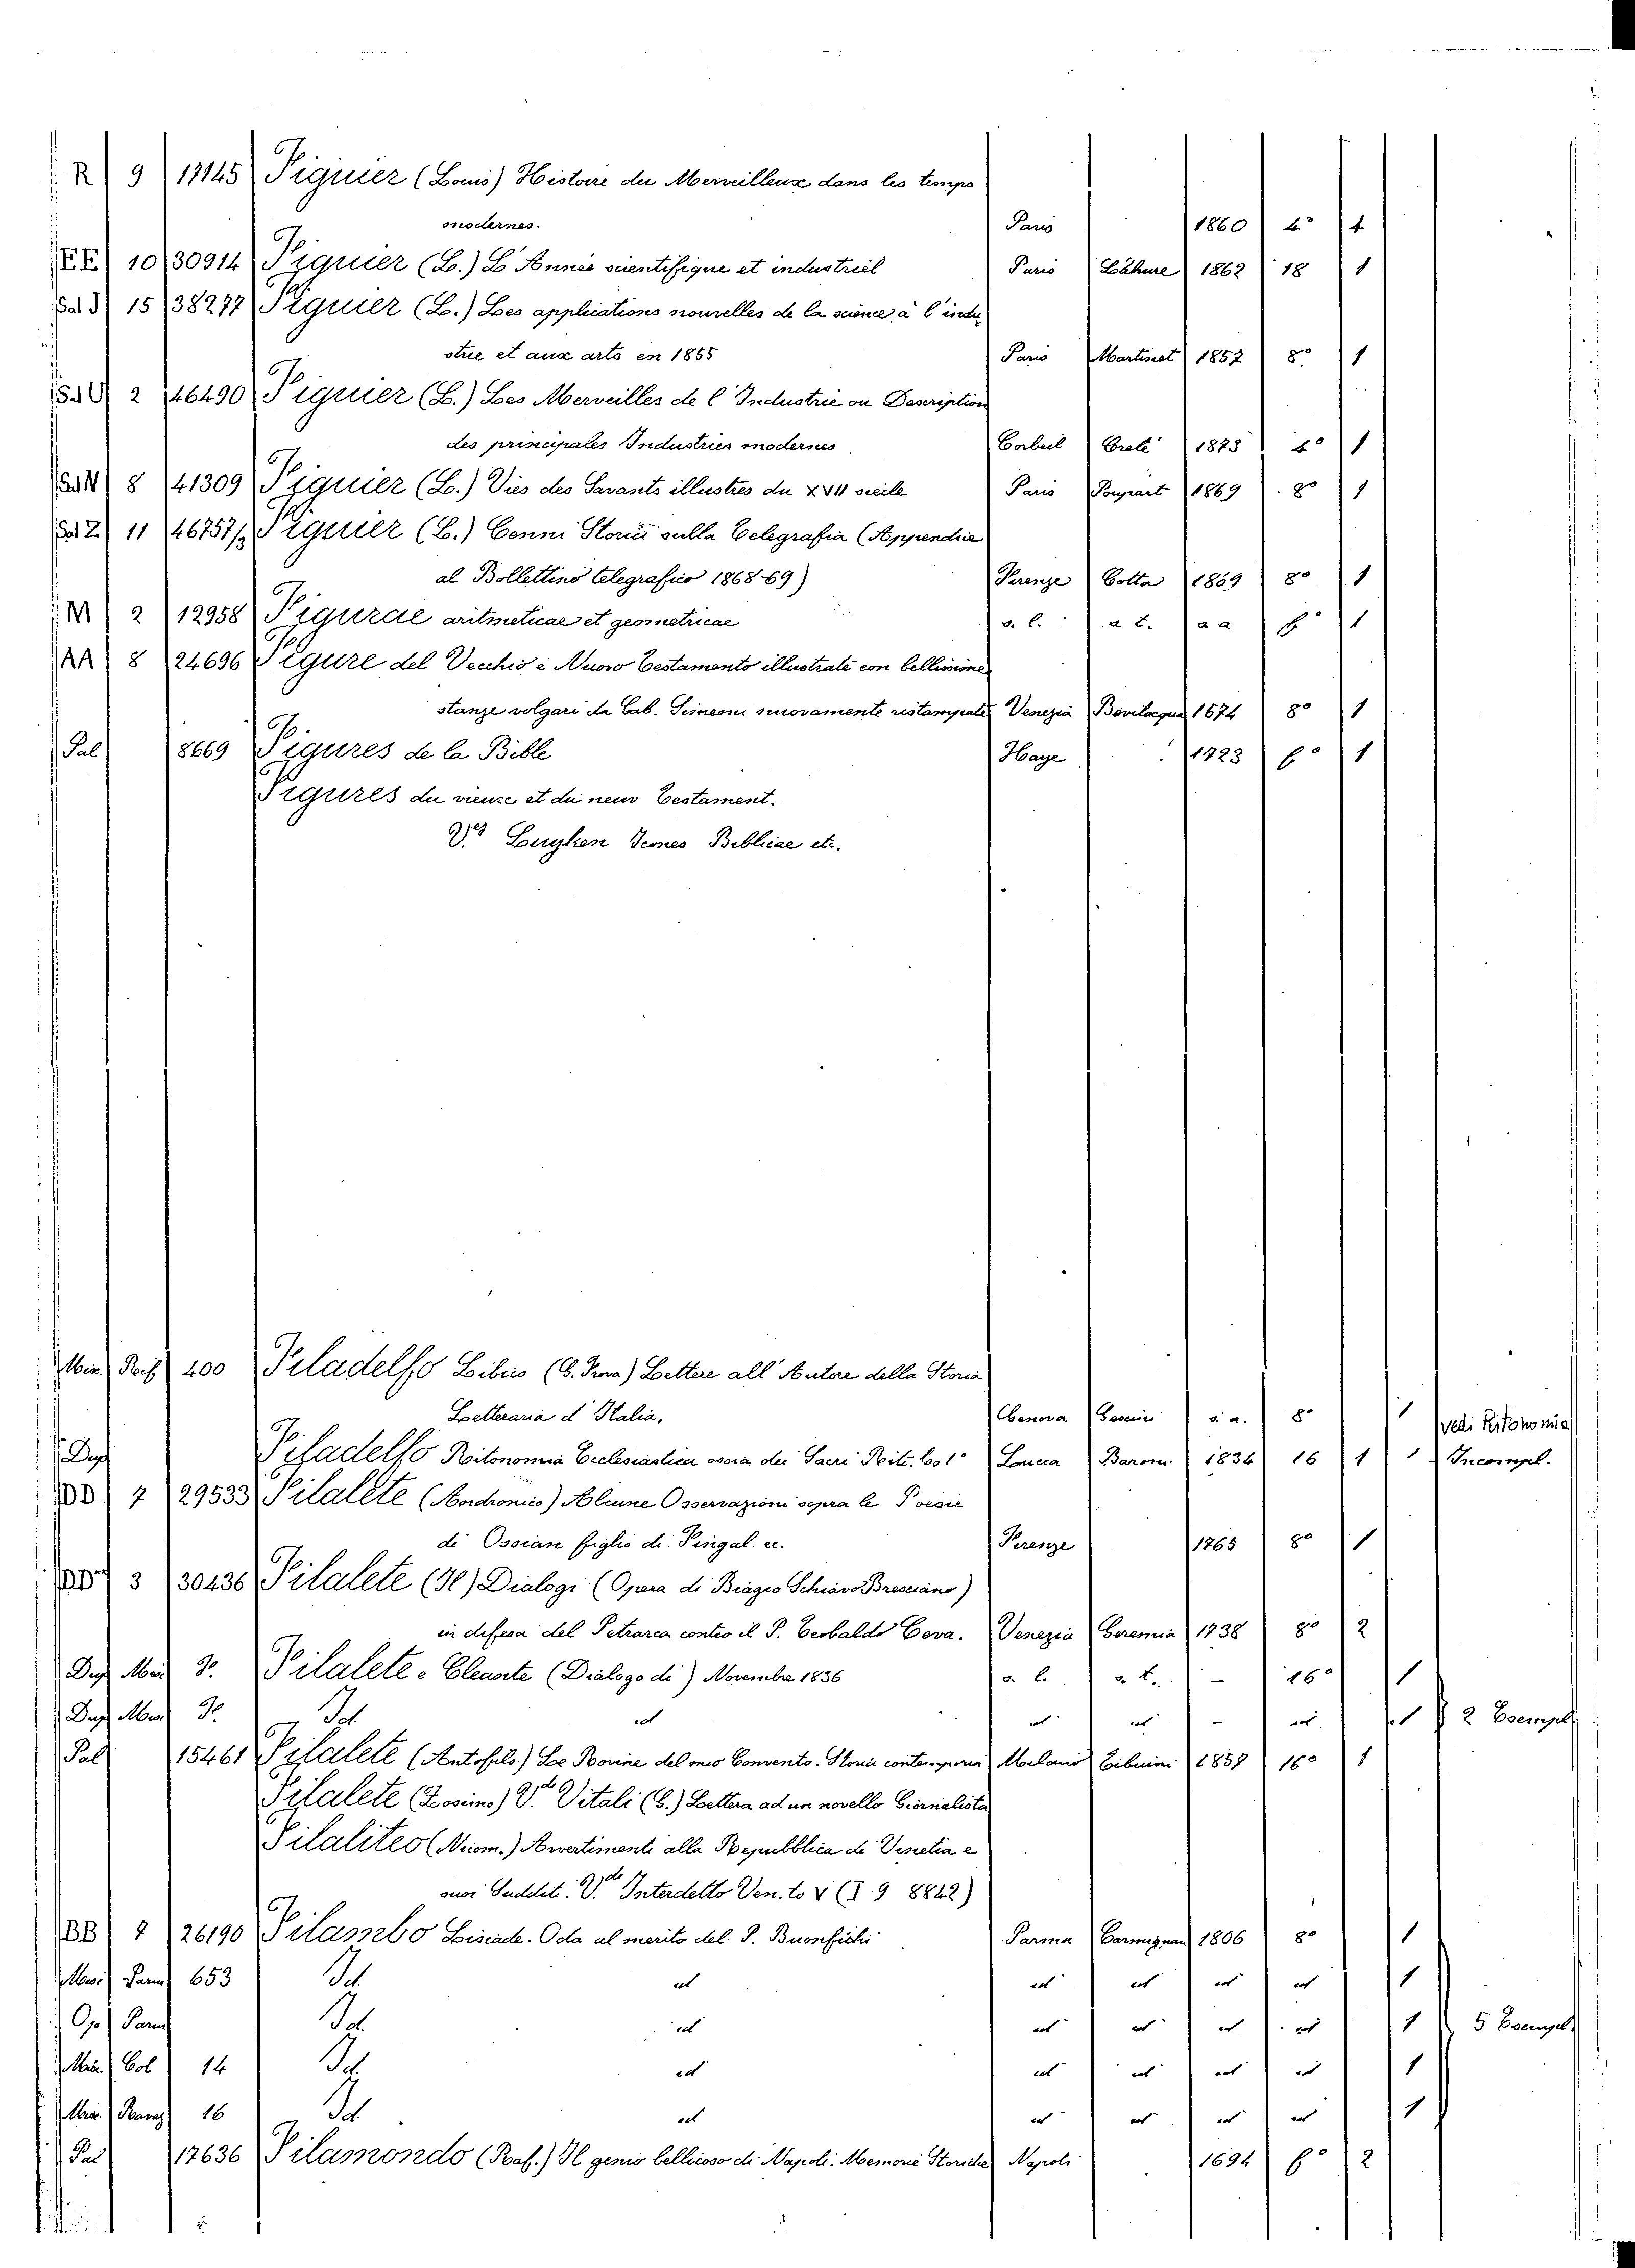 R 9 17145 Figuier (Louis) Histoire du Merveilleux dans les temps
modernes. Paris 1860 4° 4
EE 10 30914 Figuier (L.) L'Année scientifique et industriel Paris Lahure 1862 18 1
Sal J 15 38277 Figuier (L.) Les applications nouvelles de la science à l'indu
strie et aux arts en 1855 Paris Martinet 1857 8° 1
Sal 2 46490 Figuier (L.) Les Merveilles de l'Industrie ou Description
des principales Industries modernes Corbeil Creté 1873 4° 1
Sal N 8 41309 Figuier (L.) Vies des Savants illustres du XVII siecle Paris Poupart 1869 8° 1
Sal Z 11 46757/2 Figuier (L.) Cenni Storici sulla Telegrafia (Appendice
al Bollettino telegrafico 1868-69) Firenze Cotta 1869 8° 1
M 2 12958 Figurae aritmeticae et geometricae s. l. a t. a a f° 1
AA 8 24696 Figure del Vecchio e Nuovo Testamento illustrate con bellissime
stanze volgari da Gab. Simeoni nuovamente ristampate Venezia Bevilacqua 1574 8° 1
Pal 8669 Figures de la Bible Haye 1728 f° 1
Figures du vieux et du neuv Testament.
V. Luyken Icones Biblicae etc.
Misc. 400 Filadelfo Libico (G. Prova) Lettere all'Autore della Storia
Letteraria d'Italia. Genova s. a. 8° 1 vedi Ritonomia
Dup Filadelfo Ritonomia Ecclesiastica ossia dei Sacri Riti. to 1° Lucca Baroni 1834 16 1 1 Incompl.
DD 7 29533 Filalete (Andronico) Alcune Osservazioni sopra le Poesie
di Ossian figlio di Fingal. ec. Firenze 1765 8° 1
DD 3 30436 Filalete (Il) Dialogi (Opera di Biagio Schiavo Bresciano)
in difesa del Petrarca contro il P. Teobaldo Ceva. Venezia Geremia 1738 8° 2
Dup Misc F. Filalete e Cleante (Dialogo di) Novembre 1836 s. l. a t. – 16° 1
Dup Misc F. Id id id id – id 1 2 Esempl.
Pal 15461 Filalete (Antofilo.) Le Rovine del mio Convento. Storia contemporia Milano Ciburini 1857 16° 1
Filalete (Zosimo) V.de Vitali (B.) Lettera ad un novello Giornalista
Filaliteo (Nicom.) Avertimenti alla Repubblica di Venetia e
suoi Sudditi. V.de Interdetto Ven. to V (I 9 8842)
BB 7 26190 Filambo Liscade. Oda al merito del. P. Buonfichi Parma Carmignani 1806 8° 1
Misc Parm 653 Id. id id id id id 1
Op Parm Id. id id id id id 1 5 Esempl.
Misc. Col 14 Id. id id id id id 1
Misc. 16 Id. id id id id id 1
Pal 17636 Filamondo (Raf.) Il genio bellicoso di Napoli. Memorie Storiche Napoli 1694 f° 2